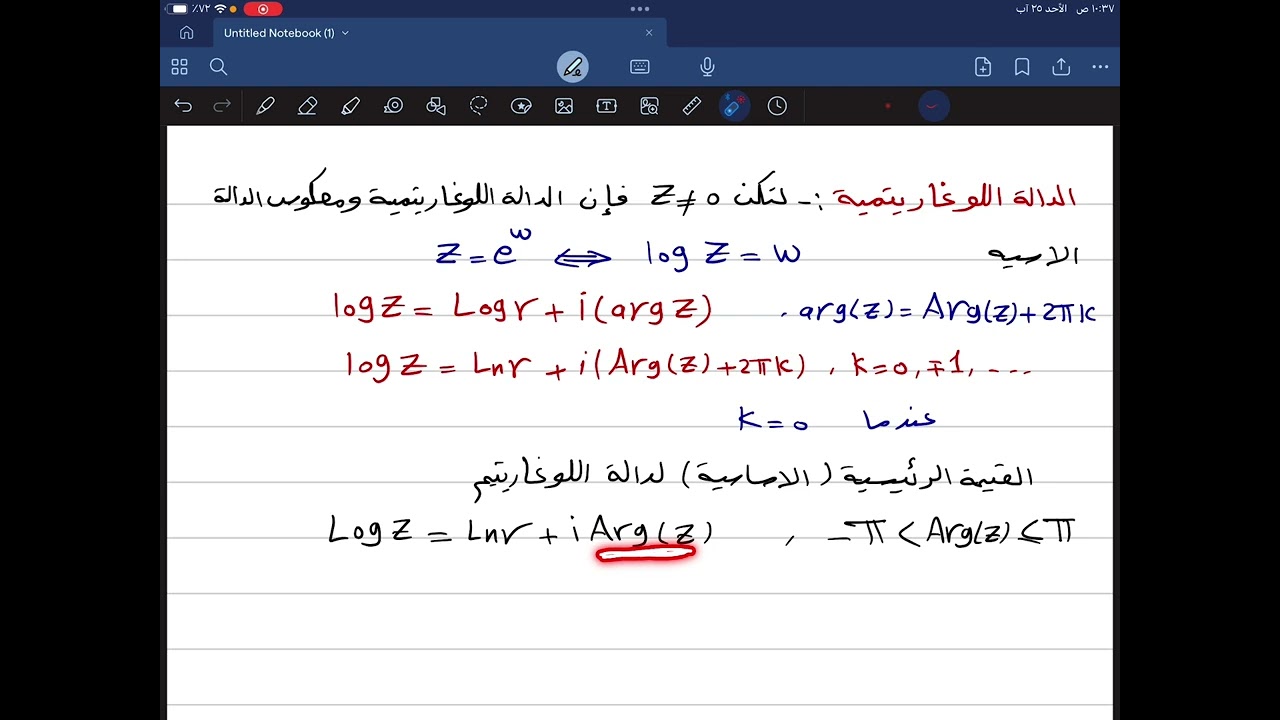 ٪٧٢
١٠:٣٧ ص الأحد ٢٥ آب
Untitled Notebook (1)
الدالة اللوغاريتمية :- لتكن z ≠ 0 فإن الدالة اللوغاريتمية ومعكوس الدالة
الاسيه
z = e^w ⟺ log z = w
log z = Log r + i(arg z) , arg(z) = Arg(z) + 2πk
log z = Ln r + i(Arg(z) + 2πk) , k = 0, ∓1, ...
عندما k = 0
القيمة الرئيسية (الاساسية) لدالة اللوغاريتم
Log z = Ln r + i Arg(z) , -π < Arg(z) ≤ π